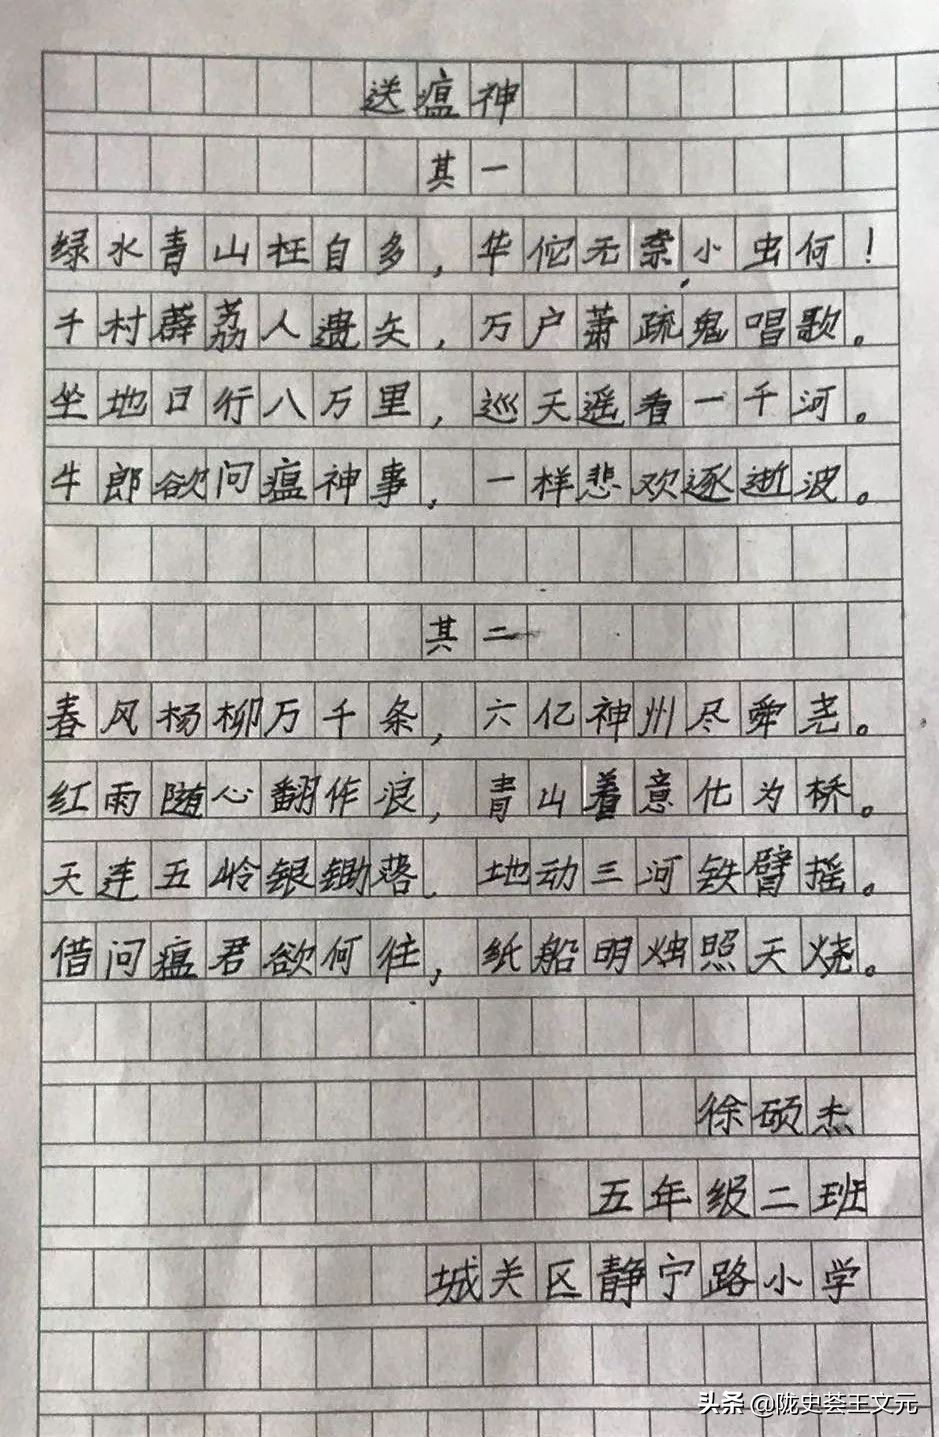 送瘟神
其一
绿水青山枉自多,华佗无奈小虫何!
千村薜荔人遗矢,万户萧疏鬼唱歌。
坐地日行八万里,巡天遥看一千河。
牛郎欲问瘟神事,一样悲欢逐逝波。
其二
春风杨柳万千条,六亿神州尽舜尧。
红雨随心翻作浪,青山着意化为桥。
天连五岭银锄落,地动三河铁臂摇。
借问瘟君欲何往,纸船明烛照天烧。
徐硕杰
五年级二班
城关区静宁路小学
头条 @陇史荟王文元